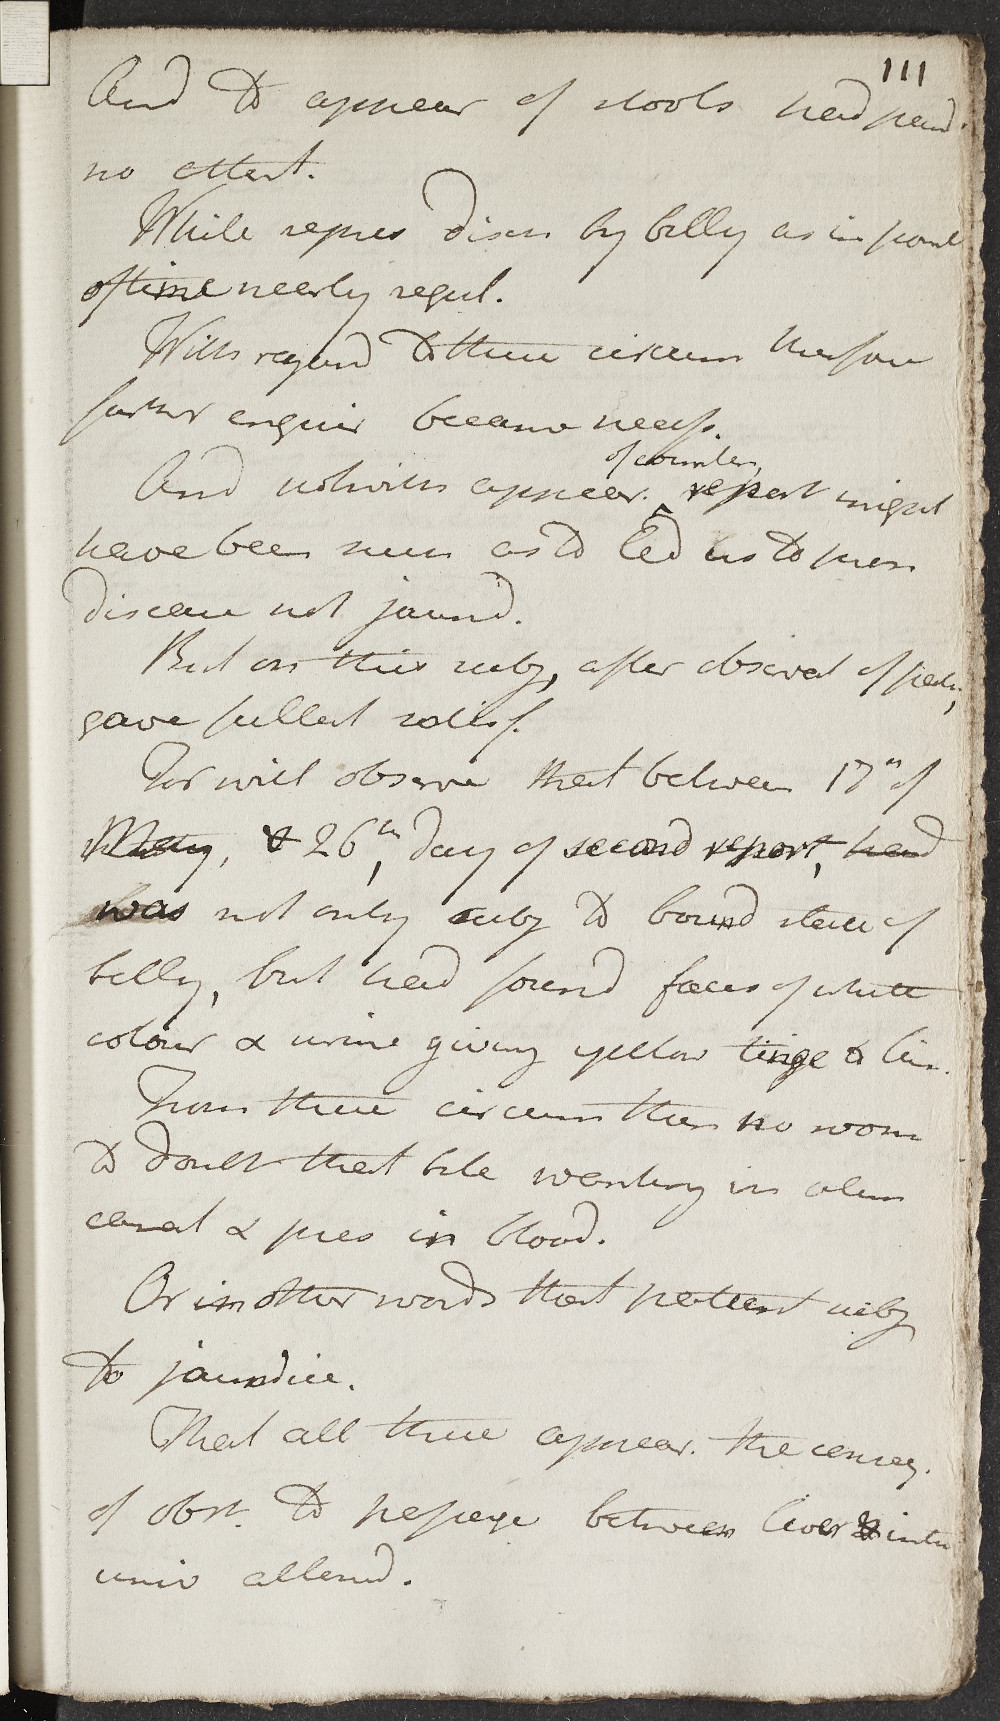 111
And to appear of stools had paid
no attent.
While repres disch by belly as in point
of time nearly regul.
With regard to these circum therefore
further enquir became necess.
of counten,
And notwith appear. ^ report might
have been such as to led us to pres
disease not jaund.
But on this subj, after observat of feces,
gave fullest relief.
For will observe that between 17th of
, & 26th, day of second report, had
was not only subj to bound state of
belly, but had found fæces of white
colour & urine giving yellow tinge to lin.
From these circum then no room
to doubt that bile wanting in alim
canal & pres in blood.
Or in other words that patient subj
to jaundice.
That all these appear. the conseq.
of obst. to passage between liver & intes
univ allowd.